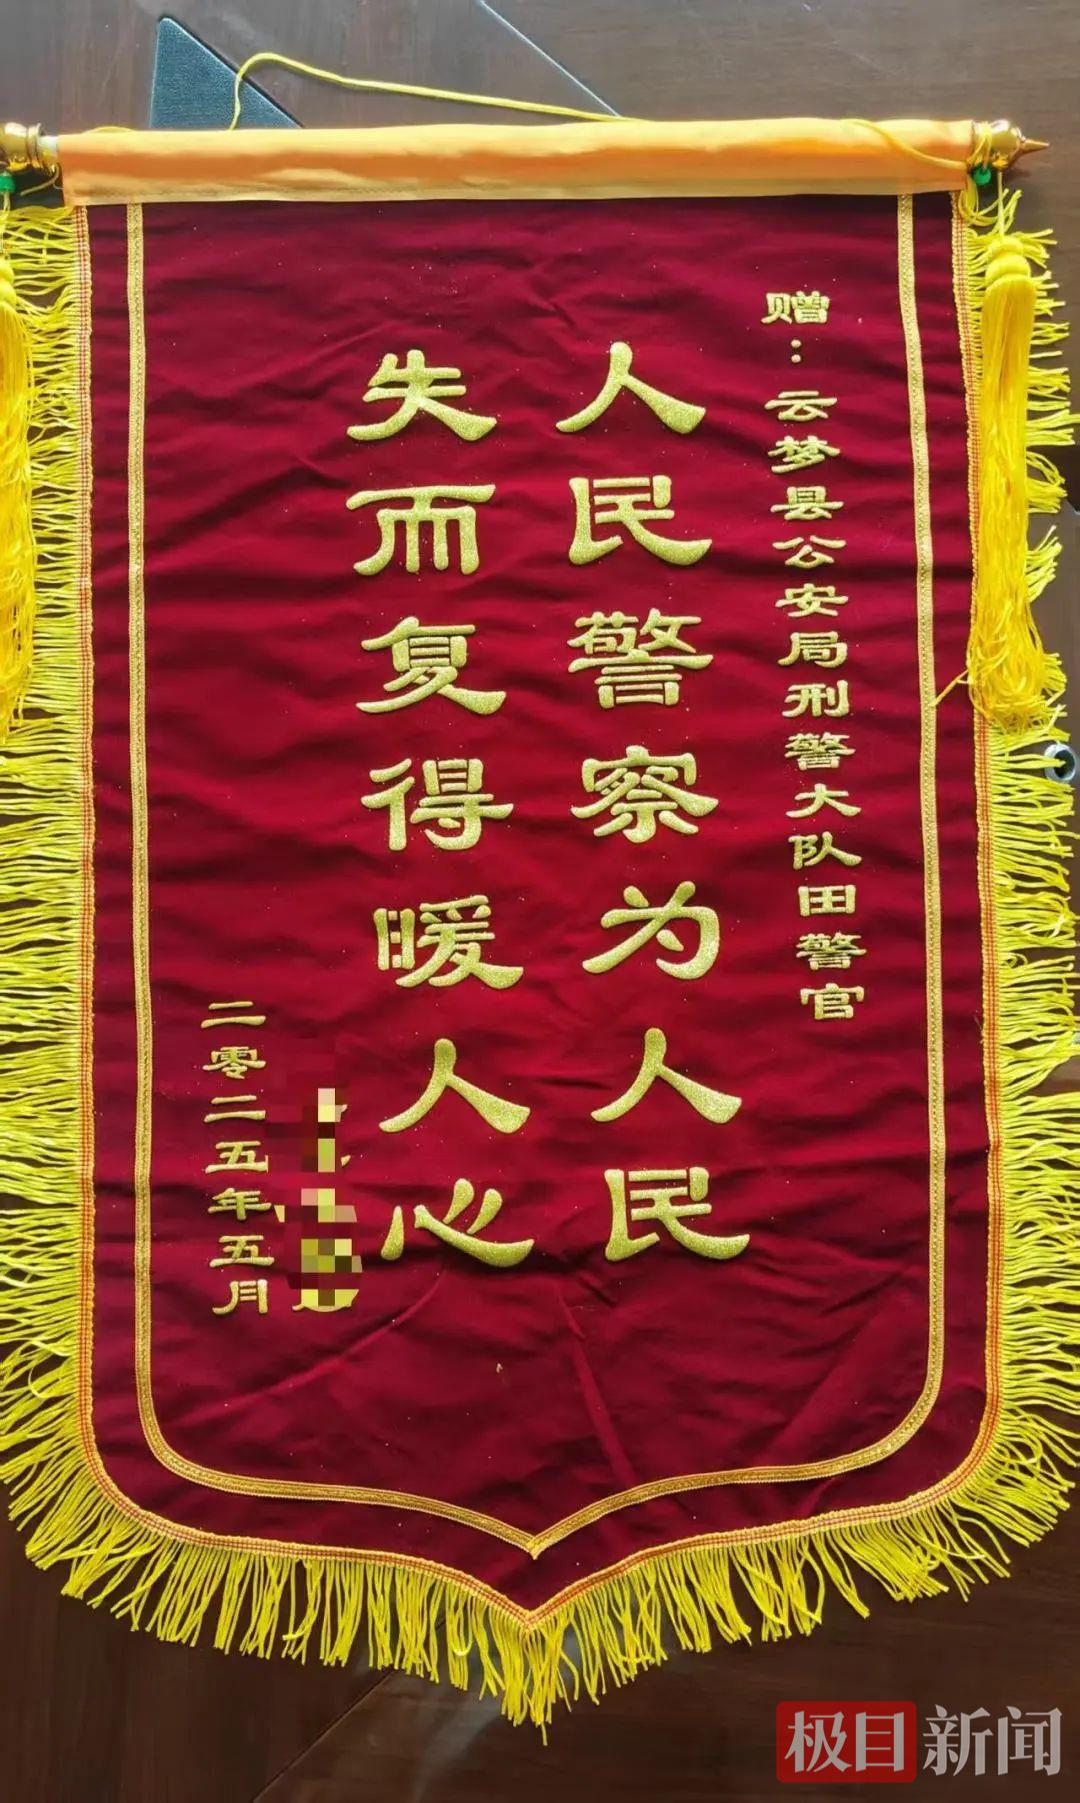 赠：云梦县公安局刑警大队田警官
人民警察为人民
失而复得暖人心
二零二五年五月
极目新闻